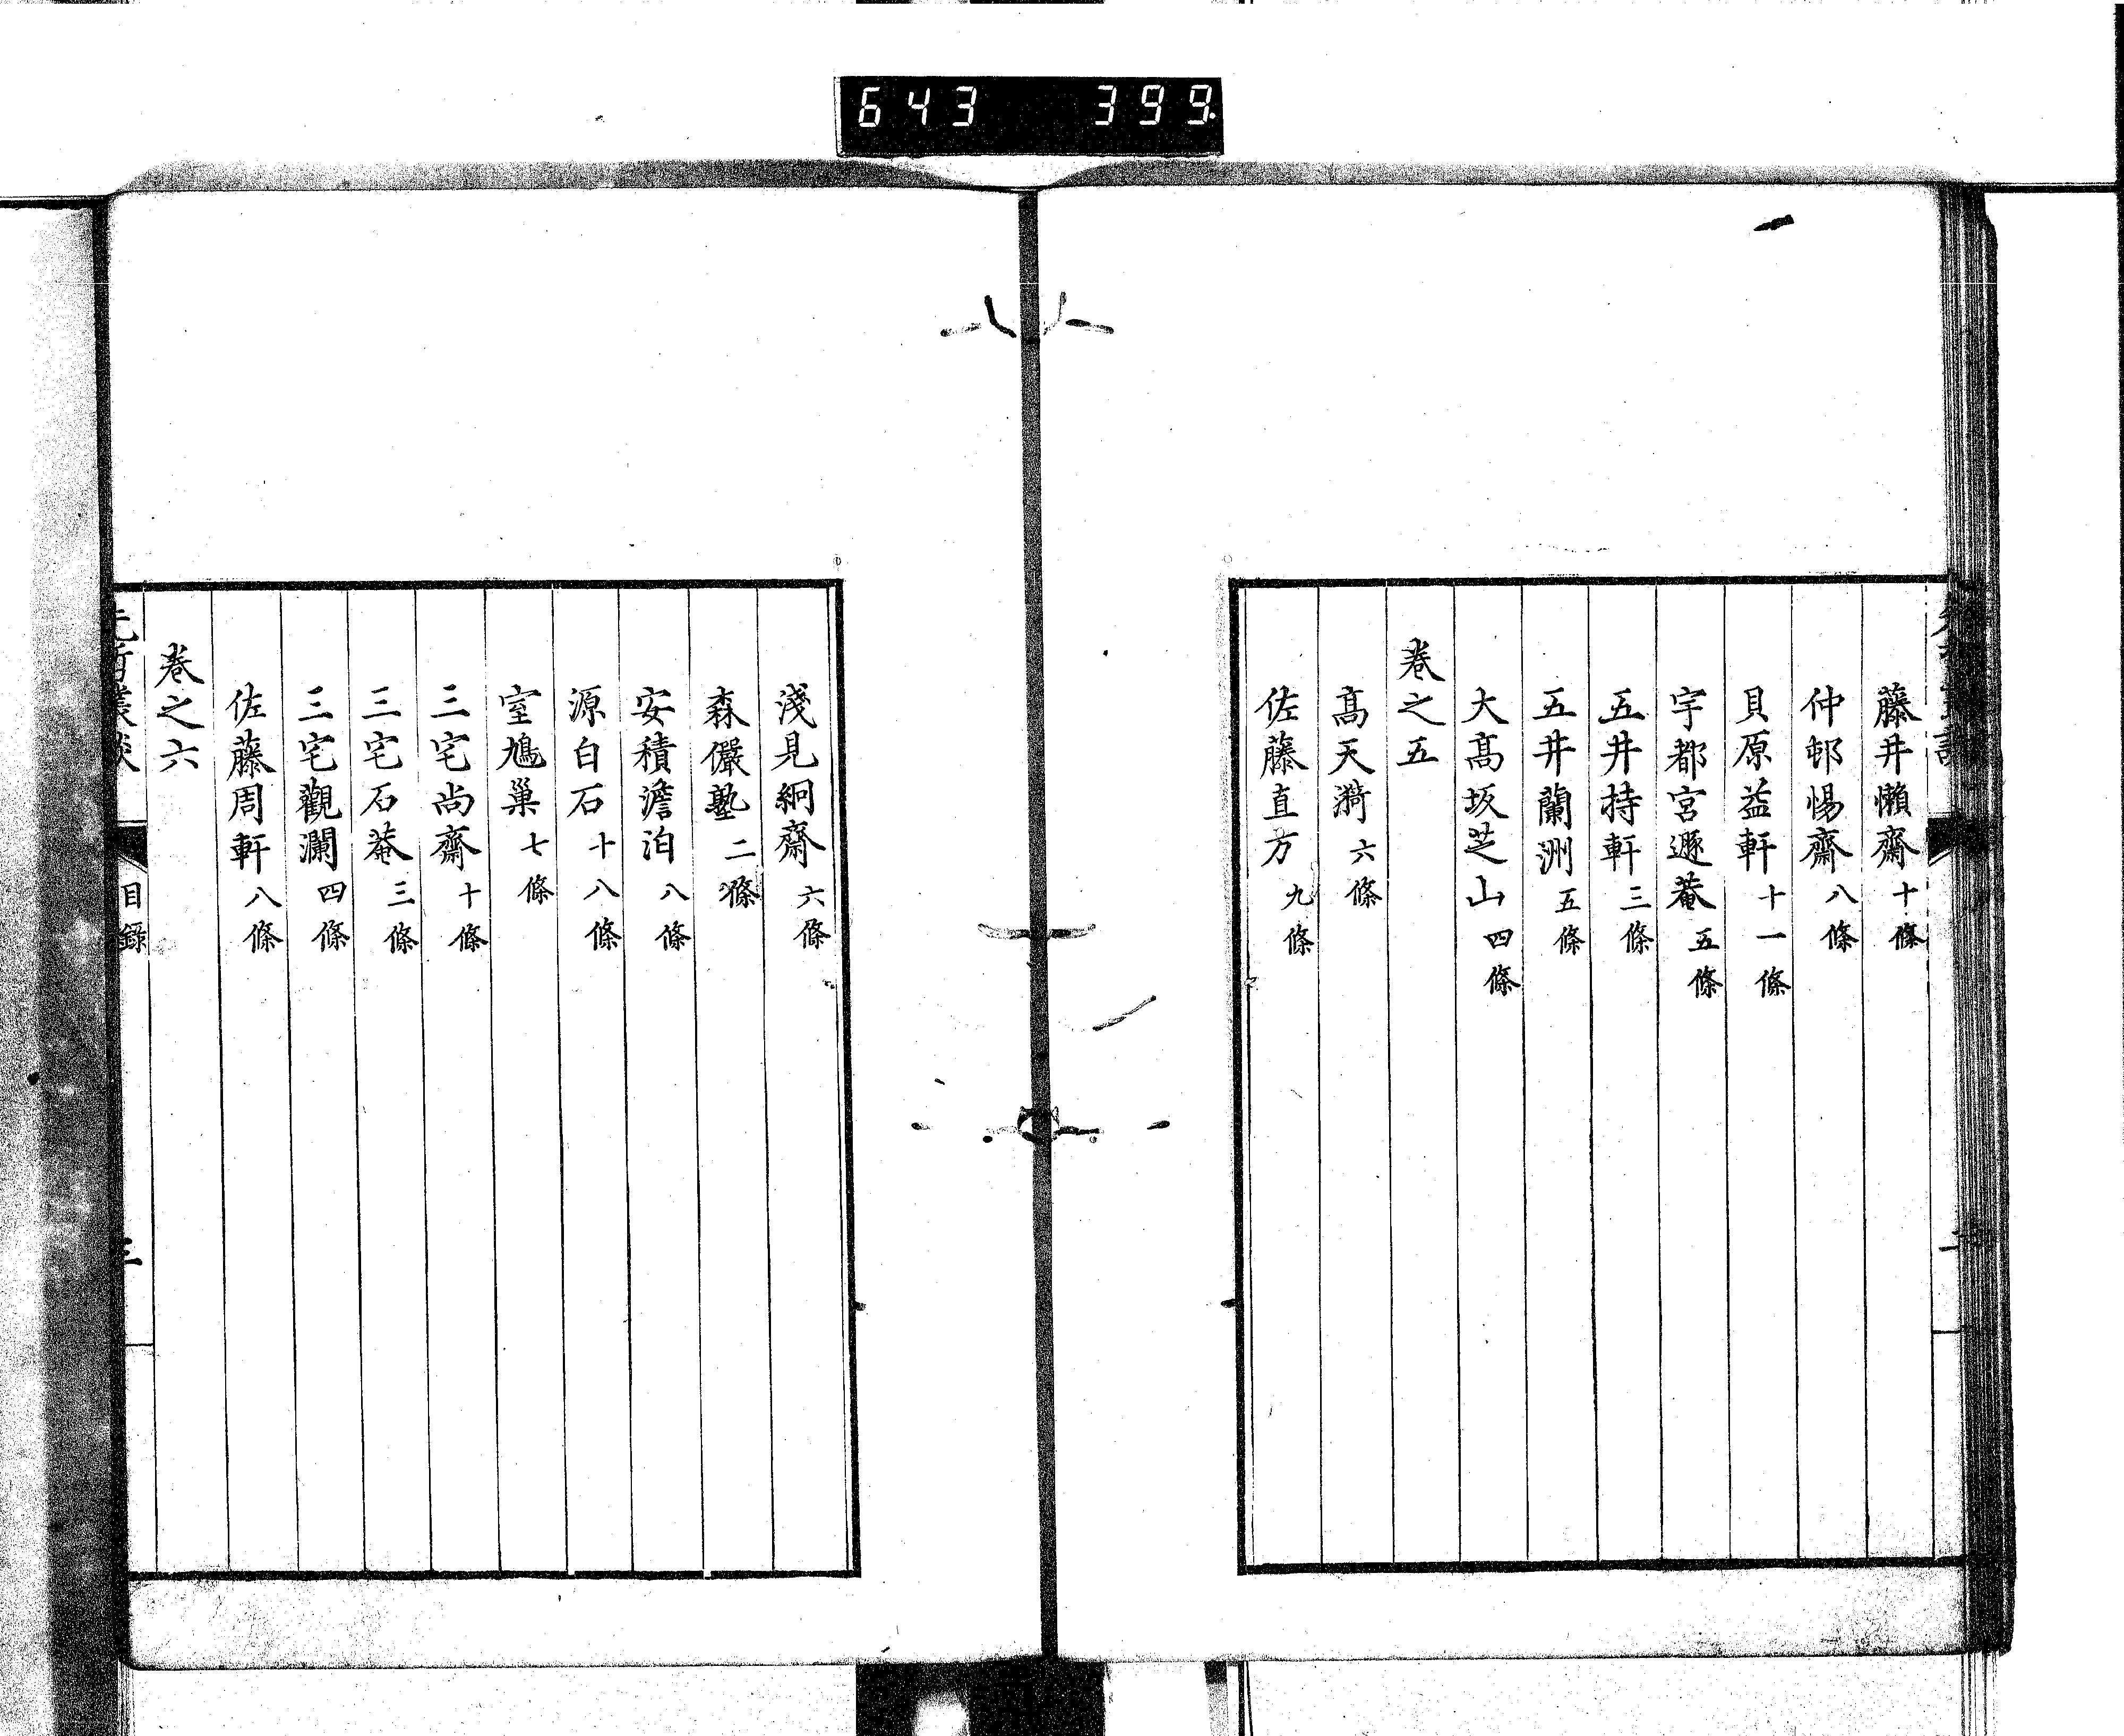 643 399
藤井懶齋 十條
仲邨惕齋 八條
貝原益軒 十一條
宇都宮遯菴 五條
五井持軒 三條
五井蘭洲 五條
大髙坂芝山 四條
卷之五
髙天漪 六條
佐藤直方 九條
淺見絅齋 六條
森儼塾 二條
安積澹泊 八條
源白石 十八條
室鳩巢 七條
三宅尚齋 十條
三宅石菴 三條
三宅觀瀾 四條
佐藤周軒 八條
卷之六
目錄
三